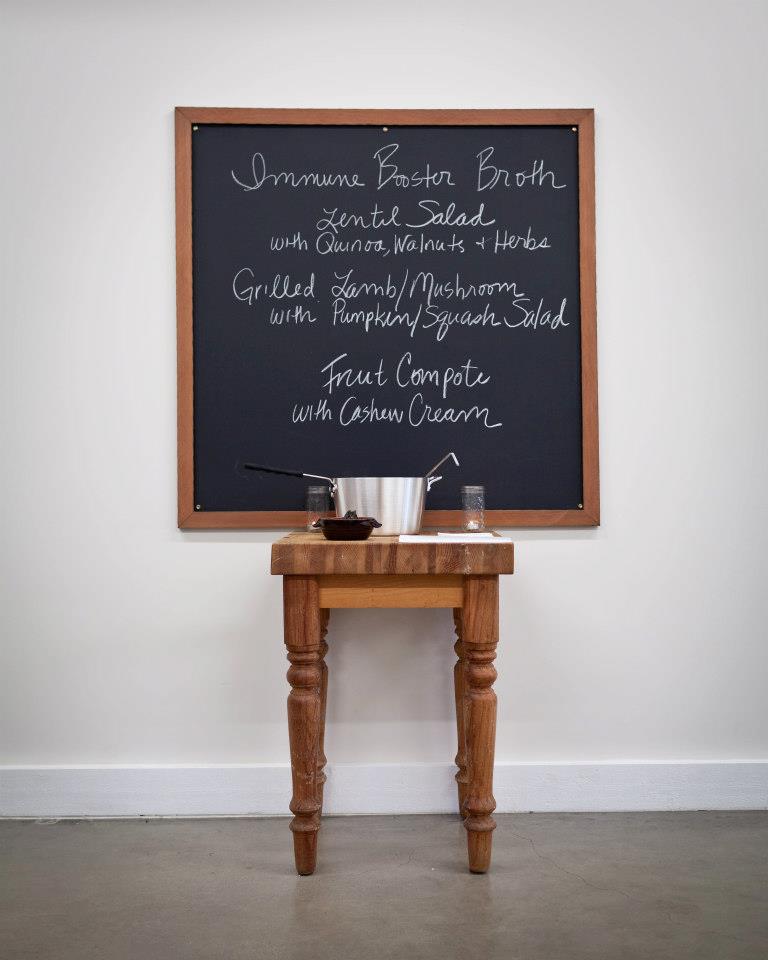 Immune Booster Broth
Lentil Salad
with Quinoa, Walnuts + Herbs
Grilled Lamb/Mushroom
with Pumpkin/Squash Salad
Fruit Compote
with Cashew Cream